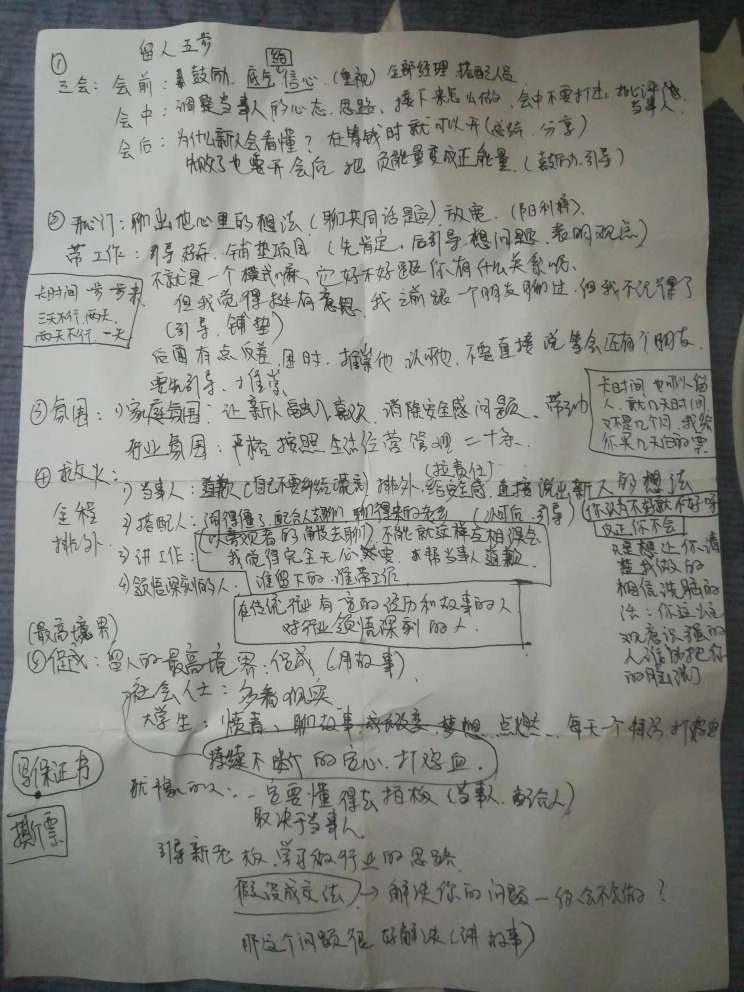 留人五步
①
三会：会前：鼓励 底气 给信心（重视）全部经理 搭配人员
会中：调整当事人的心态、思路、接下来怎么做 会中不要打击、批评
当事人
会后：为什么新人会看懂？在筹钱时就可以开（总结、分享）
失败了也要开会后 把负能量变成正能量（鼓励、引导）
② 聊出他心里的想法（聊共同话题）放宽
带工作：引导好奇、铺垫项目（先肯定、后引导、想问题、表明观点）
不就是一个模式嘛、它好不好跟你有什么关系呢、
但我觉得挺有意思、我之前跟一个朋友聊过、但我不记得了
（引导、铺垫）
卡时间 一步一步来
三天不行，两天
两天不行、一天
后面有点反差、困时、推崇他 认可他、不要直接说 还有个朋友
要先引导、推崇
③ 氛围：1）家庭氛围：让新人融入、喜欢 消除安全感问题、带动
行业氛围：严格按照生活经营管理二十条
卡时间 也可以留
人、就几天时间
又不是几个月、我给
你买几天后的票
④ 救火：
全程
排外
1）当事人：道歉（自己不要继续谎言）排外、给安全感 直接说出新人的想法
（拉责任）
2）搭配人： 配合人去聊 （认可后、引导）
（以客观者的 去聊） 不能就这样互相误会
3）讲工作： 我觉得完全无心 求帮当事人道歉
4）领悟深刻的人：谁留下的、谁带工作
在传统行业有一定的经历和故事的人
对行业领悟深刻的人
你认为不好就不好呀
反正你不会
只是想让你清
楚我做的
相信洗脑的
法：你这么主
观意识强的
人谁能把你
的脑洗了
（最高境界）
⑤ 促成：留人的最高境界：促成（用故事）
社会人士：多看现实
大学生： 聊故事 梦想 点燃、每天一个 打鸡血
持续不断的定心、打鸡血
写保证书
撕票
犹豫的人：一定要懂得去拍板（当事人、配合人）
取决于当事人
引导新老板、学习做行业的思路
假设成交法 → 解决你的问题 — 你会不会做？
那这个问题很好解决（讲故事）